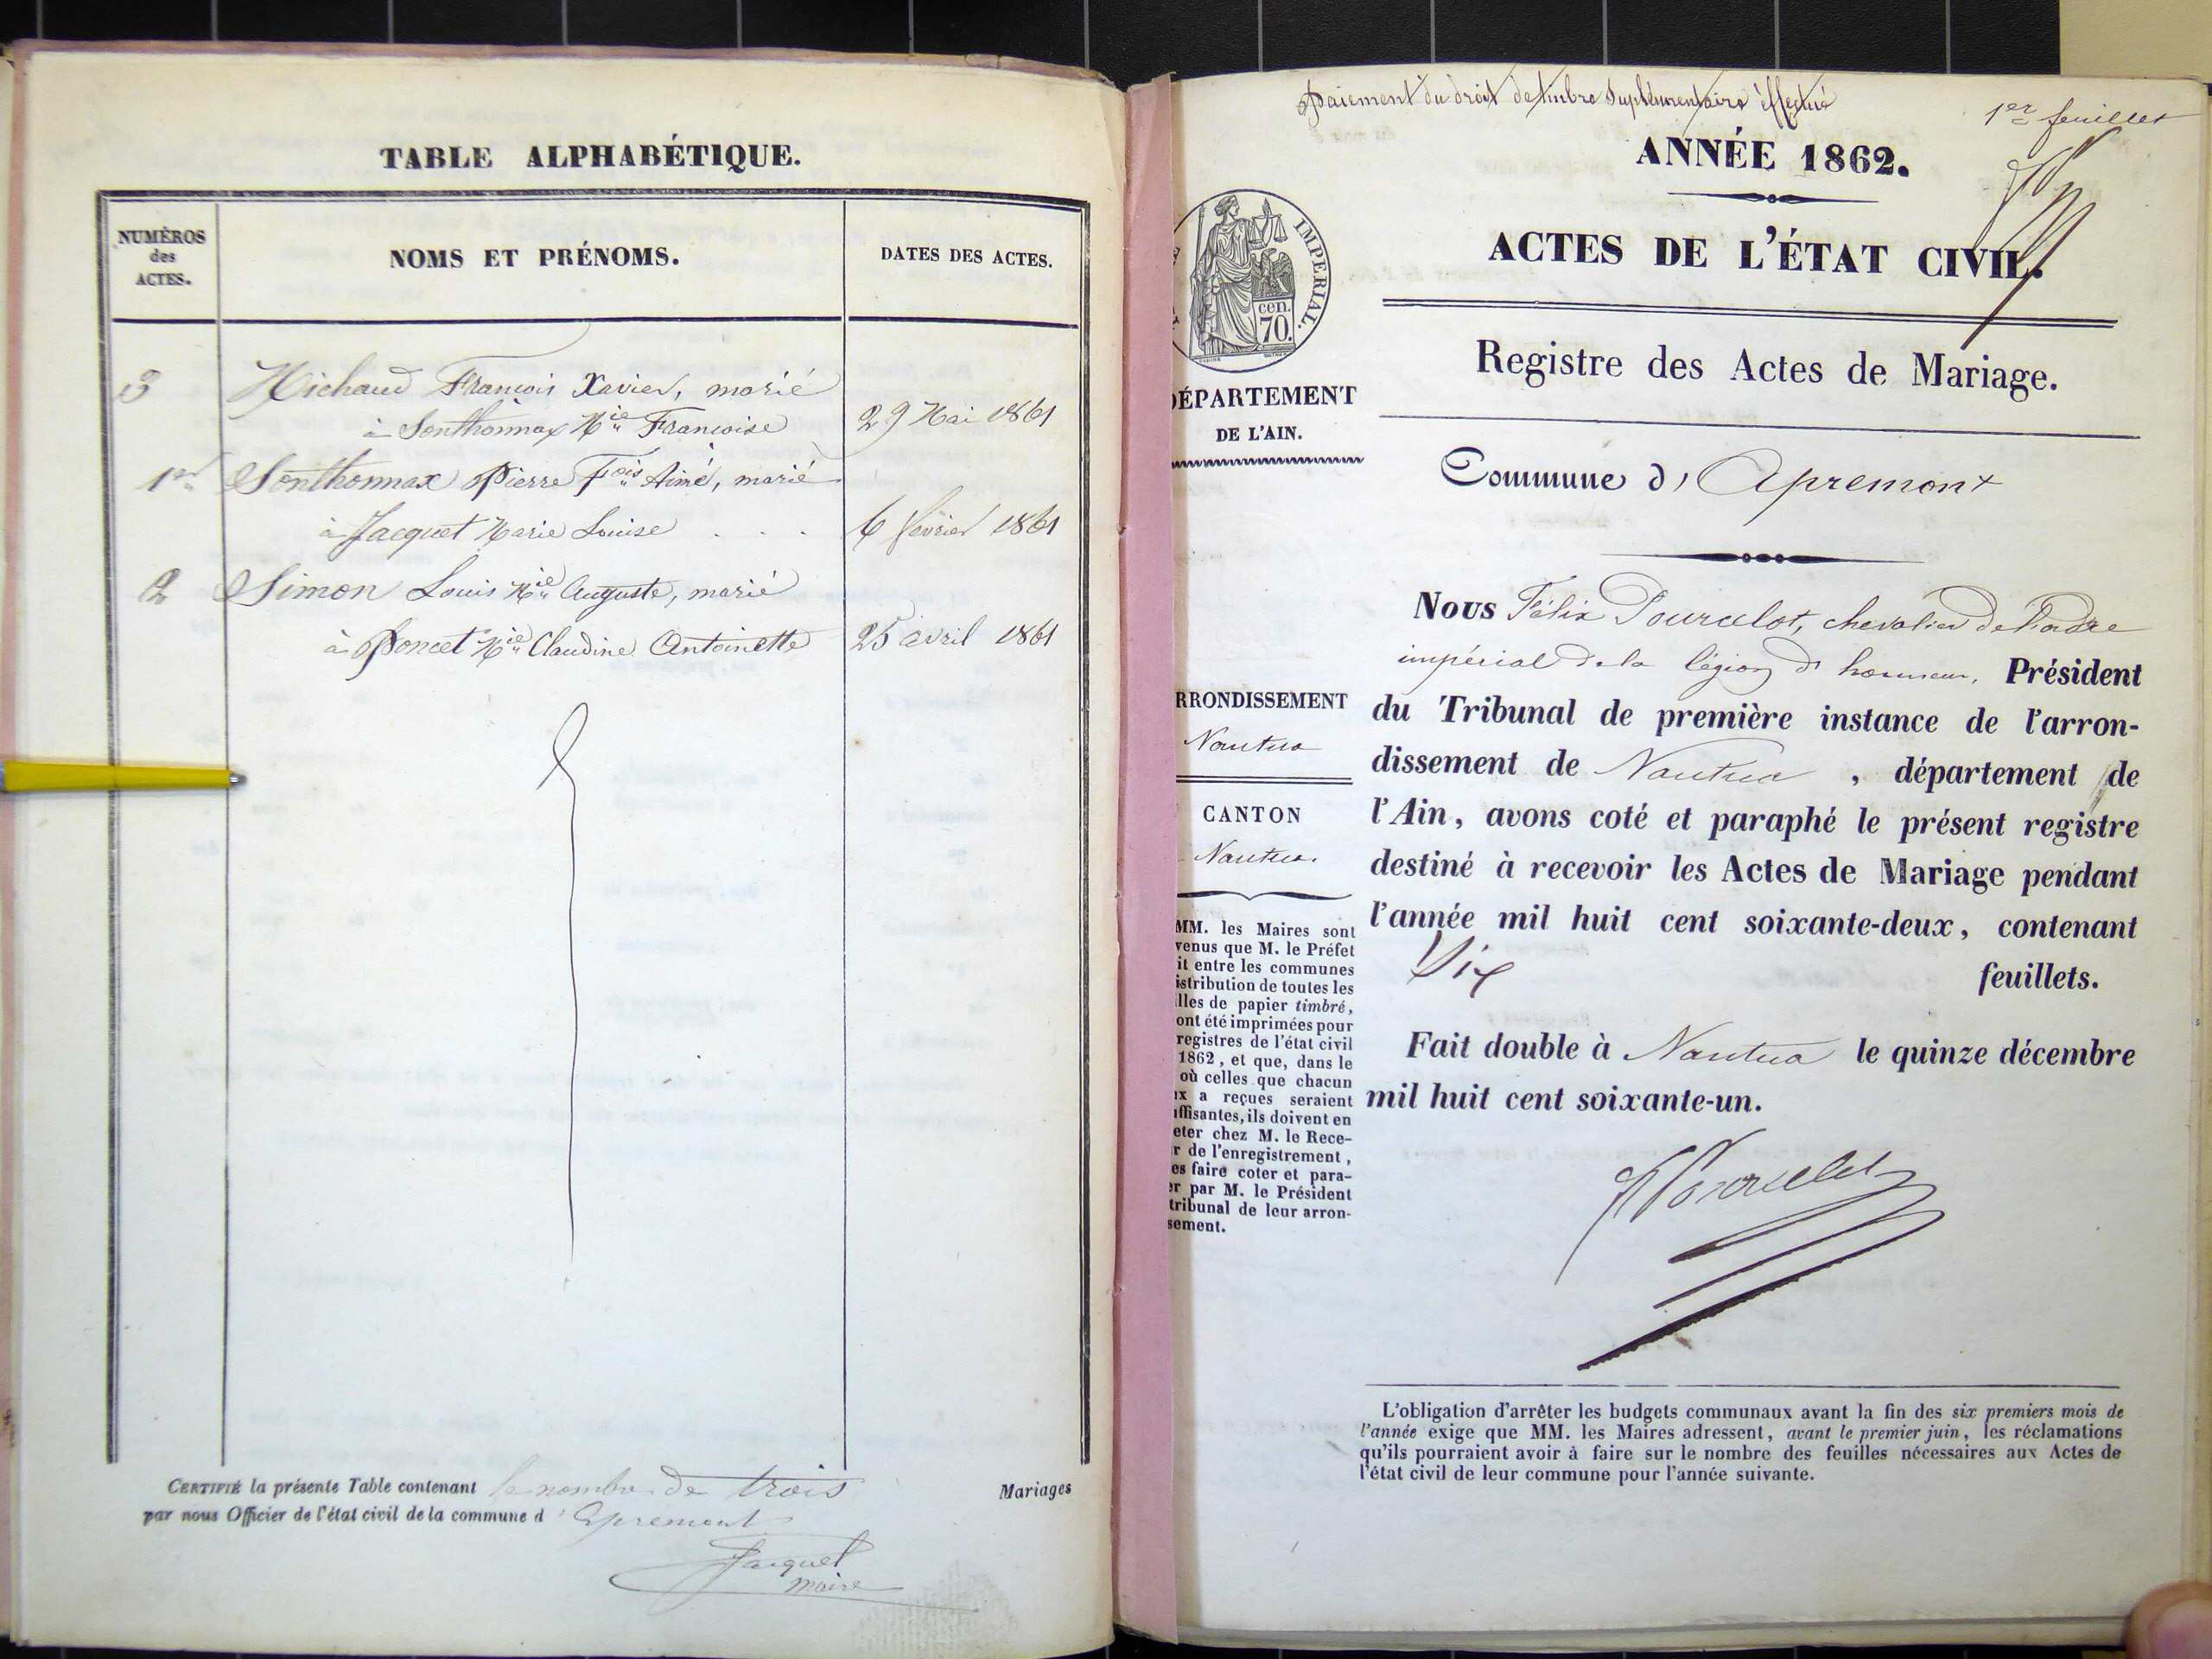 TABLE ALPHABÉTIQUE.
NUMÉROS
des
ACTES.
NOMS ET PRÉNOMS.
DATES DES ACTES.
3 Michaud François Xavier, marié
à Sonthonnax Mie Françoise 29 Mai 1861
1er Sonthonnax Pierre Fois Aimé, marié
à Jacquet Marie Louise . . . 6 février 1861
2 Simon Louis Mie Auguste, marié
à Poncet Mie Claudine Antoinette 25 avril 1861
CERTIFIÉ la présente Table contenant le nombre de trois Mariages
par nous Officier de l'état civil de la commune d' Apremont
Jacquet
maire
Paiement du droit de timbre supplémentaire effectué
1er feuillet
ANNÉE 1862.
ACTES DE L'ÉTAT CIVIL.
IMPÉRIAL.
cen.
70.
Registre des Actes de Mariage.
DÉPARTEMENT
DE L'AIN.
Commune d' Apremont
Nous Félix Pourcelot, chevalier de l'ordre
impérial de la légion d'honneur, Président
du Tribunal de première instance de l'arron-
dissement de Nantua, département de
l'Ain, avons coté et paraphé le présent registre
destiné à recevoir les Actes de Mariage pendant
l'année mil huit cent soixante-deux, contenant
Six feuillets.
Fait double à Nantua le quinze décembre
mil huit cent soixante-un.
Pourcelot
RRONDISSEMENT
Nantua
CANTON
Nantua.
MM. les Maires sont
venus que M. le Préfet
it entre les communes
istribution de toutes les
lles de papier timbré,
ont été imprimées pour
registres de l'état civil
1862, et que, dans le
où celles que chacun
ux a reçues seraient
uffisantes, ils doivent en
eter chez M. le Rece-
r de l'enregistrement,
es faire coter et para-
er par M. le Président
tribunal de leur arron-
sement.
L'obligation d'arrêter les budgets communaux avant la fin des six premiers mois de
l'année exige que MM. les Maires adressent, avant le premier juin, les réclamations
qu'ils pourraient avoir à faire sur le nombre des feuilles nécessaires aux Actes de
l'état civil de leur commune pour l'année suivante.